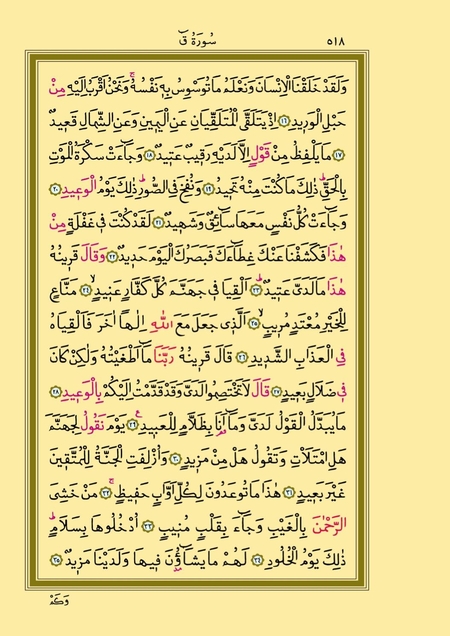 ٥١٨ سُورَةُ قٓ
وَلَقَدْ خَلَقْنَا الْاِنْسَانَ وَنَعْلَمُ مَا تُوَسْوِسُ بِهٖ نَفْسُهُۚ وَنَحْنُ اَقْرَبُ اِلَيْهِ مِنْ
حَبْلِ الْوَرٖيدِ ﴿١٦﴾ اِذْ يَتَلَقَّى الْمُتَلَقِّيَانِ عَنِ الْيَمٖينِ وَعَنِ الشِّمَالِ قَعٖيدٌ
﴿١٧﴾ مَا يَلْفِظُ مِنْ قَوْلٍ اِلَّا لَدَيْهِ رَقٖيبٌ عَتٖيدٌ ﴿١٨﴾ وَجَٓاءَتْ سَكْرَةُ الْمَوْتِ
بِالْحَقِّؕ ذٰلِكَ مَا كُنْتَ مِنْهُ تَحٖيدُ ﴿١٩﴾ وَنُفِخَ فِي الصُّورِؕ ذٰلِكَ يَوْمُ الْوَعٖيدِ ﴿٢٠﴾
وَجَٓاءَتْ كُلُّ نَفْسٍ مَعَهَا سَٓائِقٌ وَشَهٖيدٌ ﴿٢١﴾ لَقَدْ كُنْتَ فٖي غَفْلَةٍ مِنْ
هٰذَا فَكَشَفْنَا عَنْكَ غِطَٓاءَكَ فَبَصَرُكَ الْيَوْمَ حَدٖيدٌ ﴿٢٢﴾ وَقَالَ قَرٖينُهُ
هٰذَا مَا لَدَيَّ عَتٖيدٌؕ ﴿٢٣﴾ اَلْقِيَا فٖي جَهَنَّمَ كُلَّ كَفَّارٍ عَنٖيدٍۙ ﴿٢٤﴾ مَنَّاعٍ
لِلْخَيْرِ مُعْتَدٍ مُرٖيبٍۙ ﴿٢٥﴾ اَلَّذٖي جَعَلَ مَعَ اللّٰهِ اِلٰهًا اٰخَرَ فَاَلْقِيَاهُ
فِي الْعَذَابِ الشَّدٖيدِ ﴿٢٦﴾ قَالَ قَرٖينُهُ رَبَّنَا مَٓا اَطْغَيْتُهُ وَلٰكِنْ كَانَ
فٖي ضَلَالٍ بَعٖيدٍ ﴿٢٧﴾ قَالَ لَا تَخْتَصِمُوا لَدَيَّ وَقَدْ قَدَّمْتُ اِلَيْكُمْ بِالْوَعٖيدِ ﴿٢٨﴾
مَا يُبَدَّلُ الْقَوْلُ لَدَيَّ وَمَٓا اَنَا۬ بِظَلَّامٍ لِلْعَبٖيدِ۟ ﴿٢٩﴾ يَوْمَ نَقُولُ لِجَهَنَّمَ
هَلِ امْتَلَأْتِ وَتَقُولُ هَلْ مِنْ مَزٖيدٍ ﴿٣٠﴾ وَاُزْلِفَتِ الْجَنَّةُ لِلْمُتَّقٖينَ
غَيْرَ بَعٖيدٍ ﴿٣١﴾ هٰذَا مَا تُوعَدُونَ لِكُلِّ اَوَّابٍ حَفٖيظٍۚ ﴿٣٢﴾ مَنْ خَشِيَ
الرَّحْمٰنَ بِالْغَيْبِ وَجَٓاءَ بِقَلْبٍ مُنٖيبٍۙ ﴿٣٣﴾ اُدْخُلُوهَا بِسَلَامٍؕ
ذٰلِكَ يَوْمُ الْخُلُودِ ﴿٣٤﴾ لَهُمْ مَا يَشَٓاؤُ۫نَ فٖيهَا وَلَدَيْنَا مَزٖيدٌ ﴿٣٥﴾
وَكَمْ